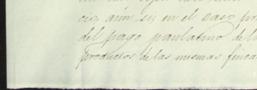 cio, aún si en el caso pro
del pago paulatino del
productos de las mismas finca